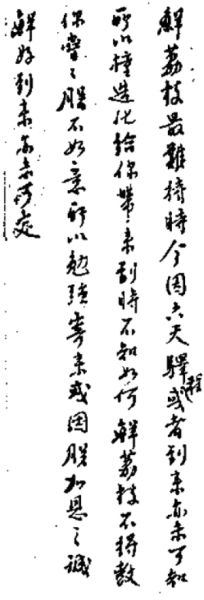 鮮荔枝最難持時今因六天驛程或者到来亦未可知
所以種造化給你帶来到時不知如何鮮荔枝不得敷
你孽之服不如意所以勉强寄来或因服加恩之誠
鮮好到来亦未可定